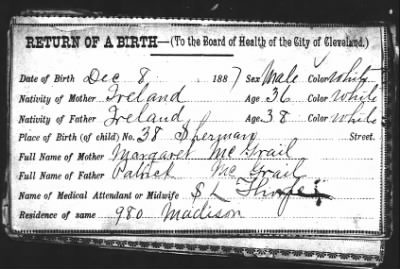 RETURN OF A BIRTH—(To the Board of Health of the City of Cleveland.)
Date of Birth Dec 8 1887 Sex Male Color White
Nativity of Mother Ireland Age 36 Color White
Nativity of Father Ireland Age 38 Color White
Place of Birth (of child) No. 38 Sherman Street.
Full Name of Mother Margaret McGrail
Full Name of Father Patrick McGrail
Name of Medical Attendant or Midwife S L
Residence of same 980 Madison